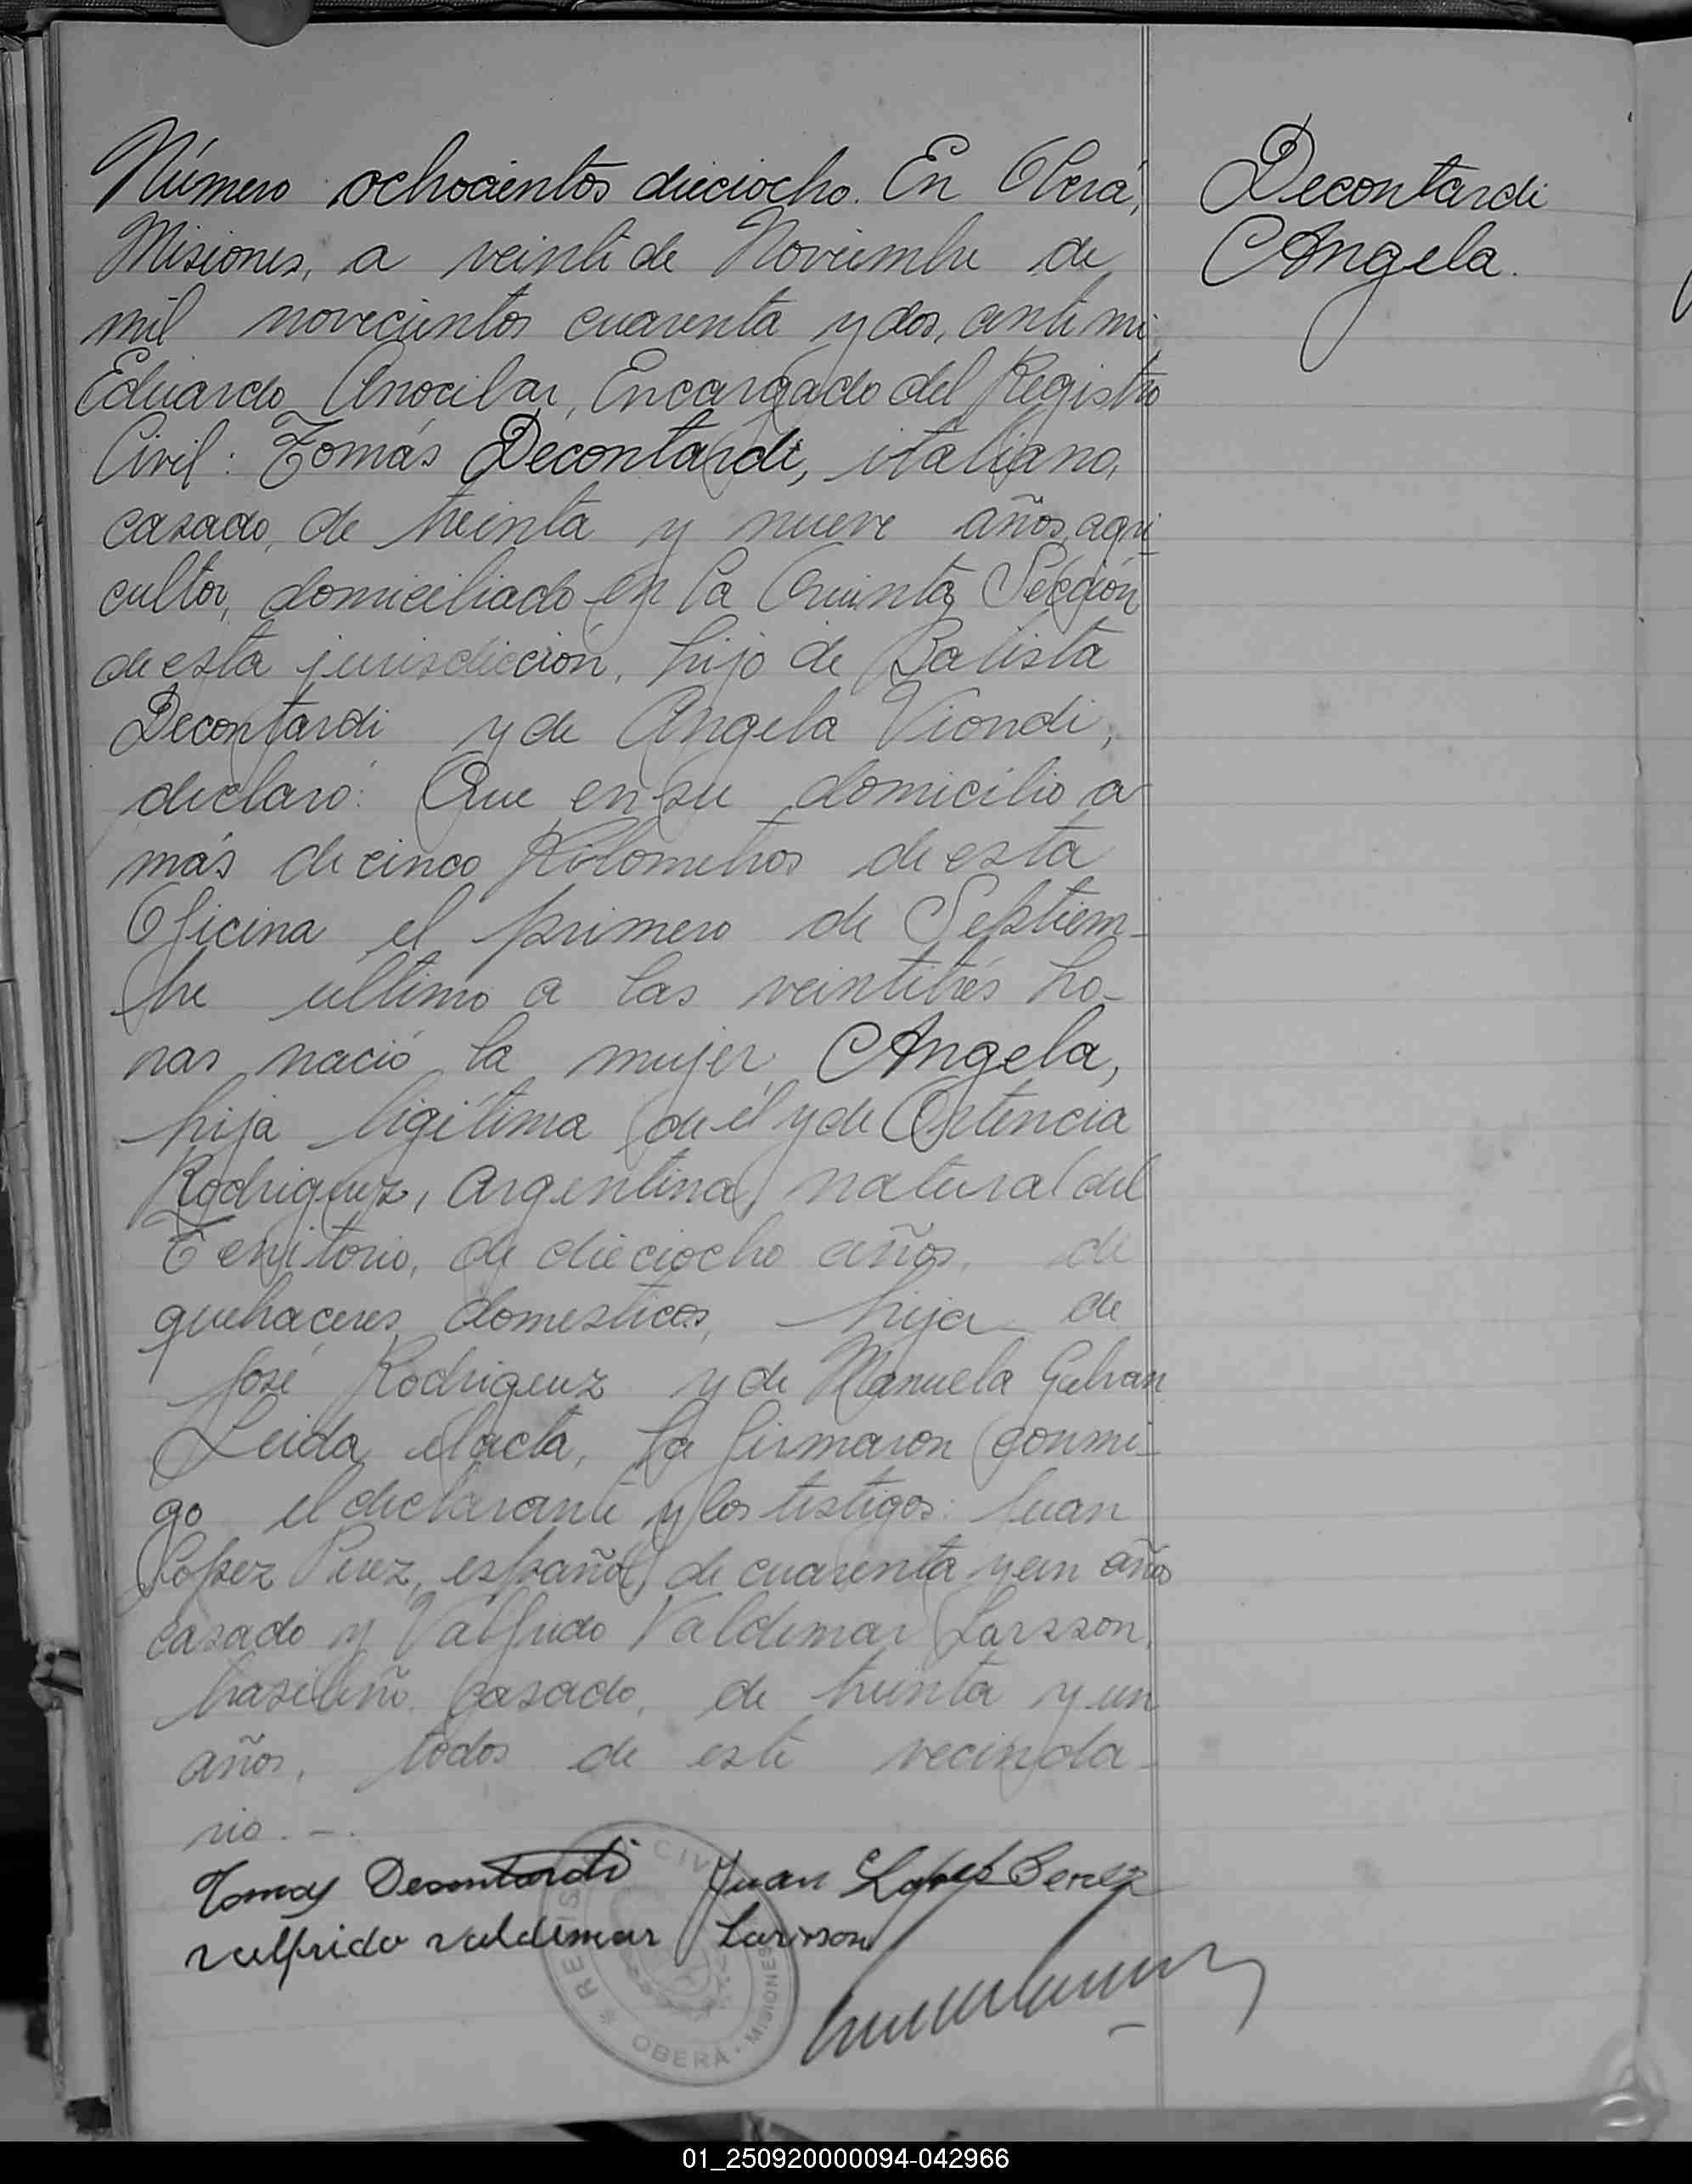 Número ochocientos dieciocho. En Oberá,
Misiones, a veinte de Noviembre de
mil novecientos cuarenta y dos, ante mi
Eduardo Anocibar, Encargado del Registro
Civil: Tomás Decontardi, italiano,
casado, de treinta y nueve años, agri-
cultor, domiciliado en la Quinta Sección
de esta jurisdicción, hijo de Batista
Decontardi y de Angela Viondi,
declaró: Que en su domicilio a
más de cinco Kilometros de esta
Oficina el primero de Septiem-
bre último a las veintitrés ho-
ras nació la mujer Angela,
hija legítima de él y de Ortencia
Rodriguez, argentina, natural del
Territorio, de dieciocho años, de
quehaceres domesticos, hija de
José Rodriguez y de Manuela Galvan
Leida el acta, la firmaron conmi-
go el declarante y los testigos: Juan
Lopez Perez, español, de cuarenta y un años
casado y Valfrido Valdemar Larsson,
brasileño, casado, de treinta y un
años, todos de este vecinda-
rio.-.
Decontardi
Angela.
Tomas Decontardi Juan Lopes Perez
Valfrido Valdemar Larsson
REGISTRO CIVIL
OBERÁ - MISIONES
01_250920000094-042966